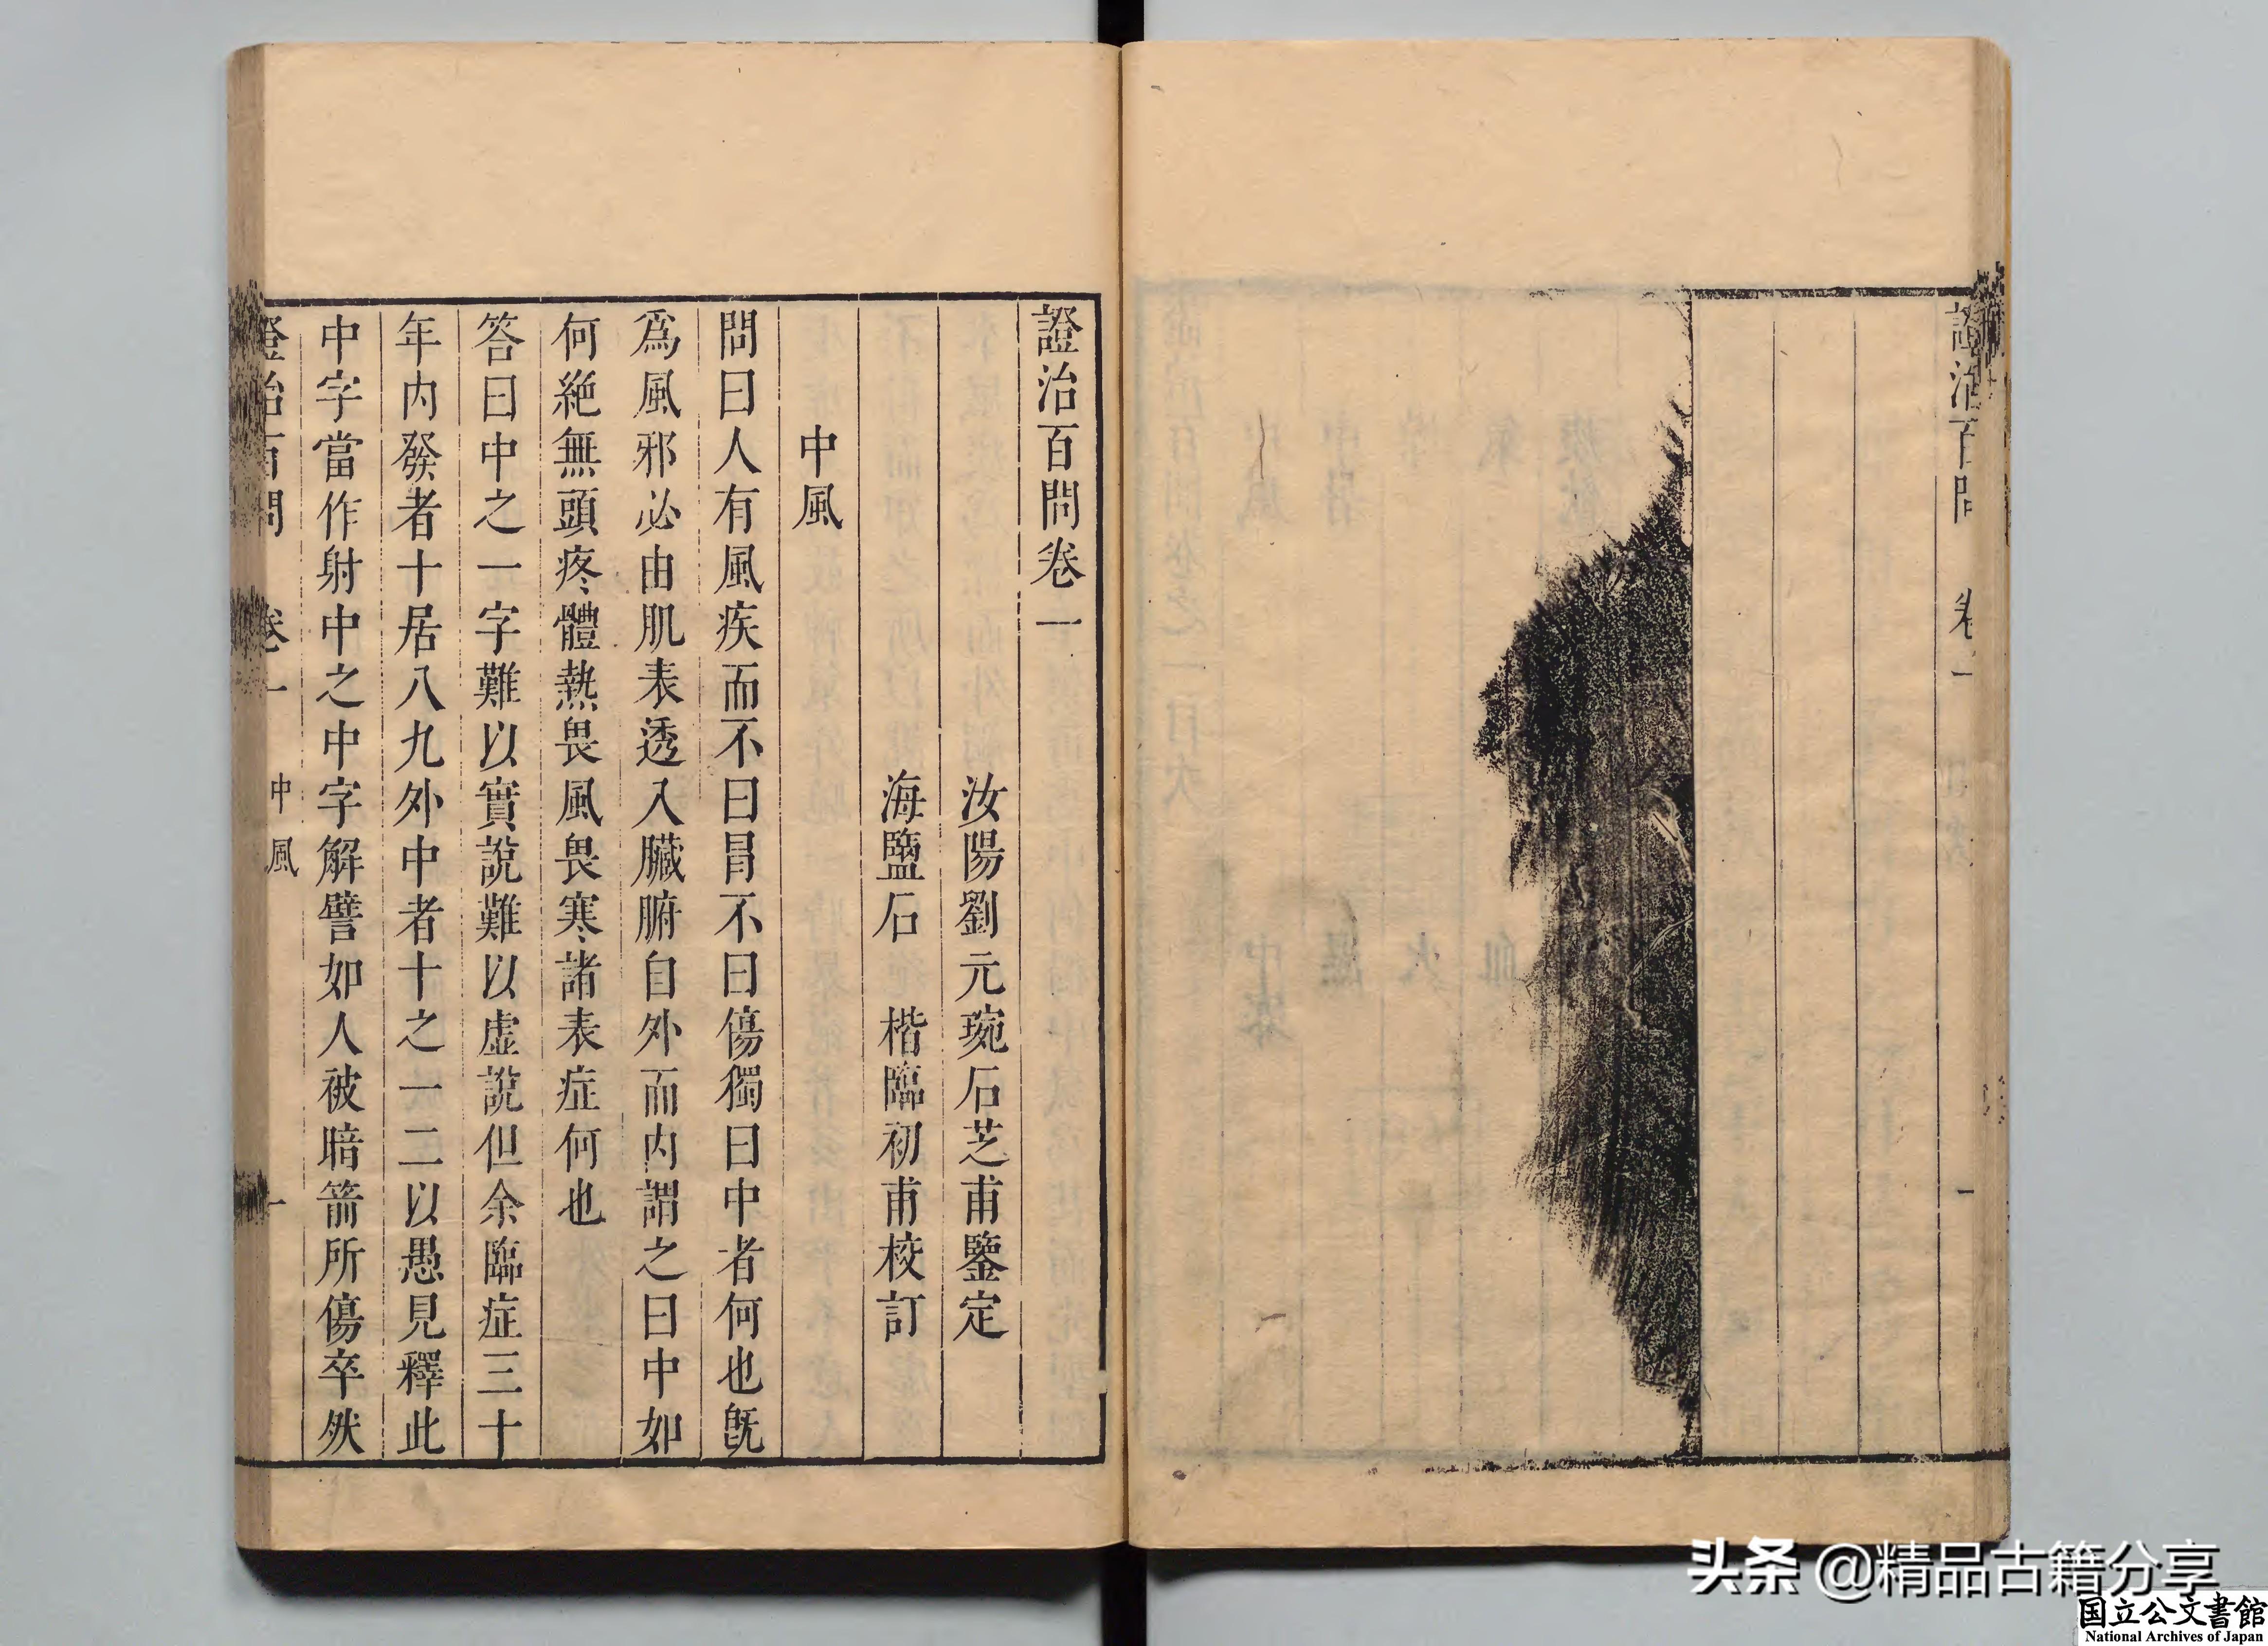 證治百問
卷一
一
證治百問卷一
汝陽劉元琬石芝甫鑒定
海鹽石 楷臨初甫校訂
中風
問曰人有風疾而不曰冐不曰傷獨曰中者何也旣
爲風邪必由肌表透入臟腑自外而內謂之曰中如
何絶無頭疼體熱畏風畏寒諸表症何也
答曰中之一字難以實說難以虛說但余臨症三十
年內發者十居八九外中者十之一二以愚見釋此
中字當作射中之中字解譬如人被暗箭所傷卒然
證治百問
卷一
中風
一
头条 @精品古籍分享
国立公文書館
National Archives of Japan